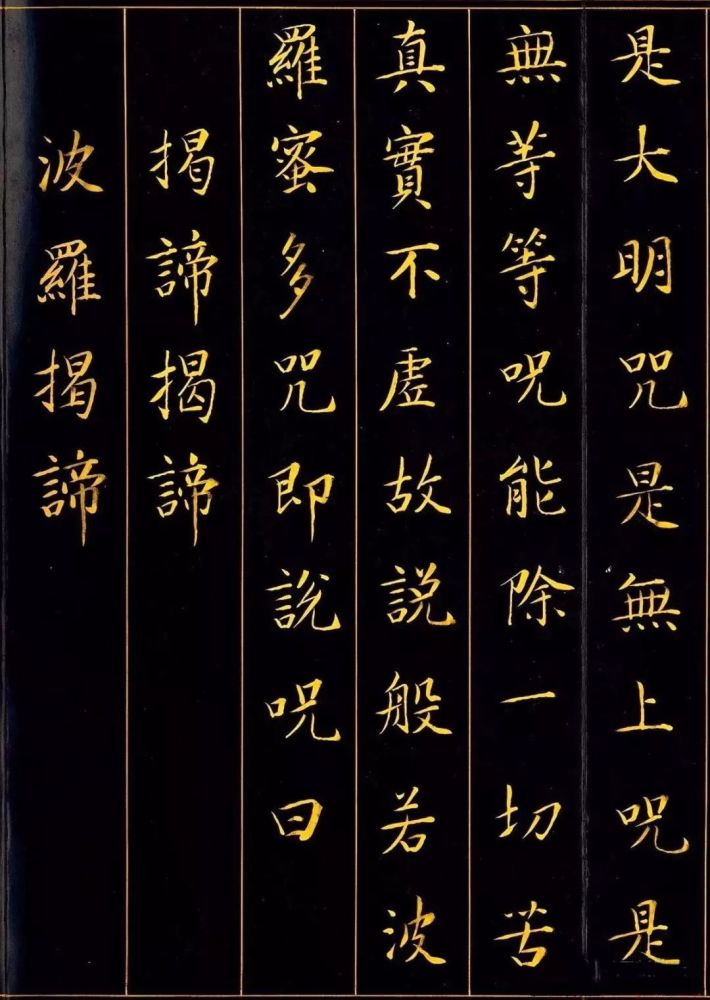 是大明咒是無上呪是
無等等呪能除一切苦
真實不虛故説般若波
羅蜜多咒即説呪曰
揭諦揭諦
波羅揭諦